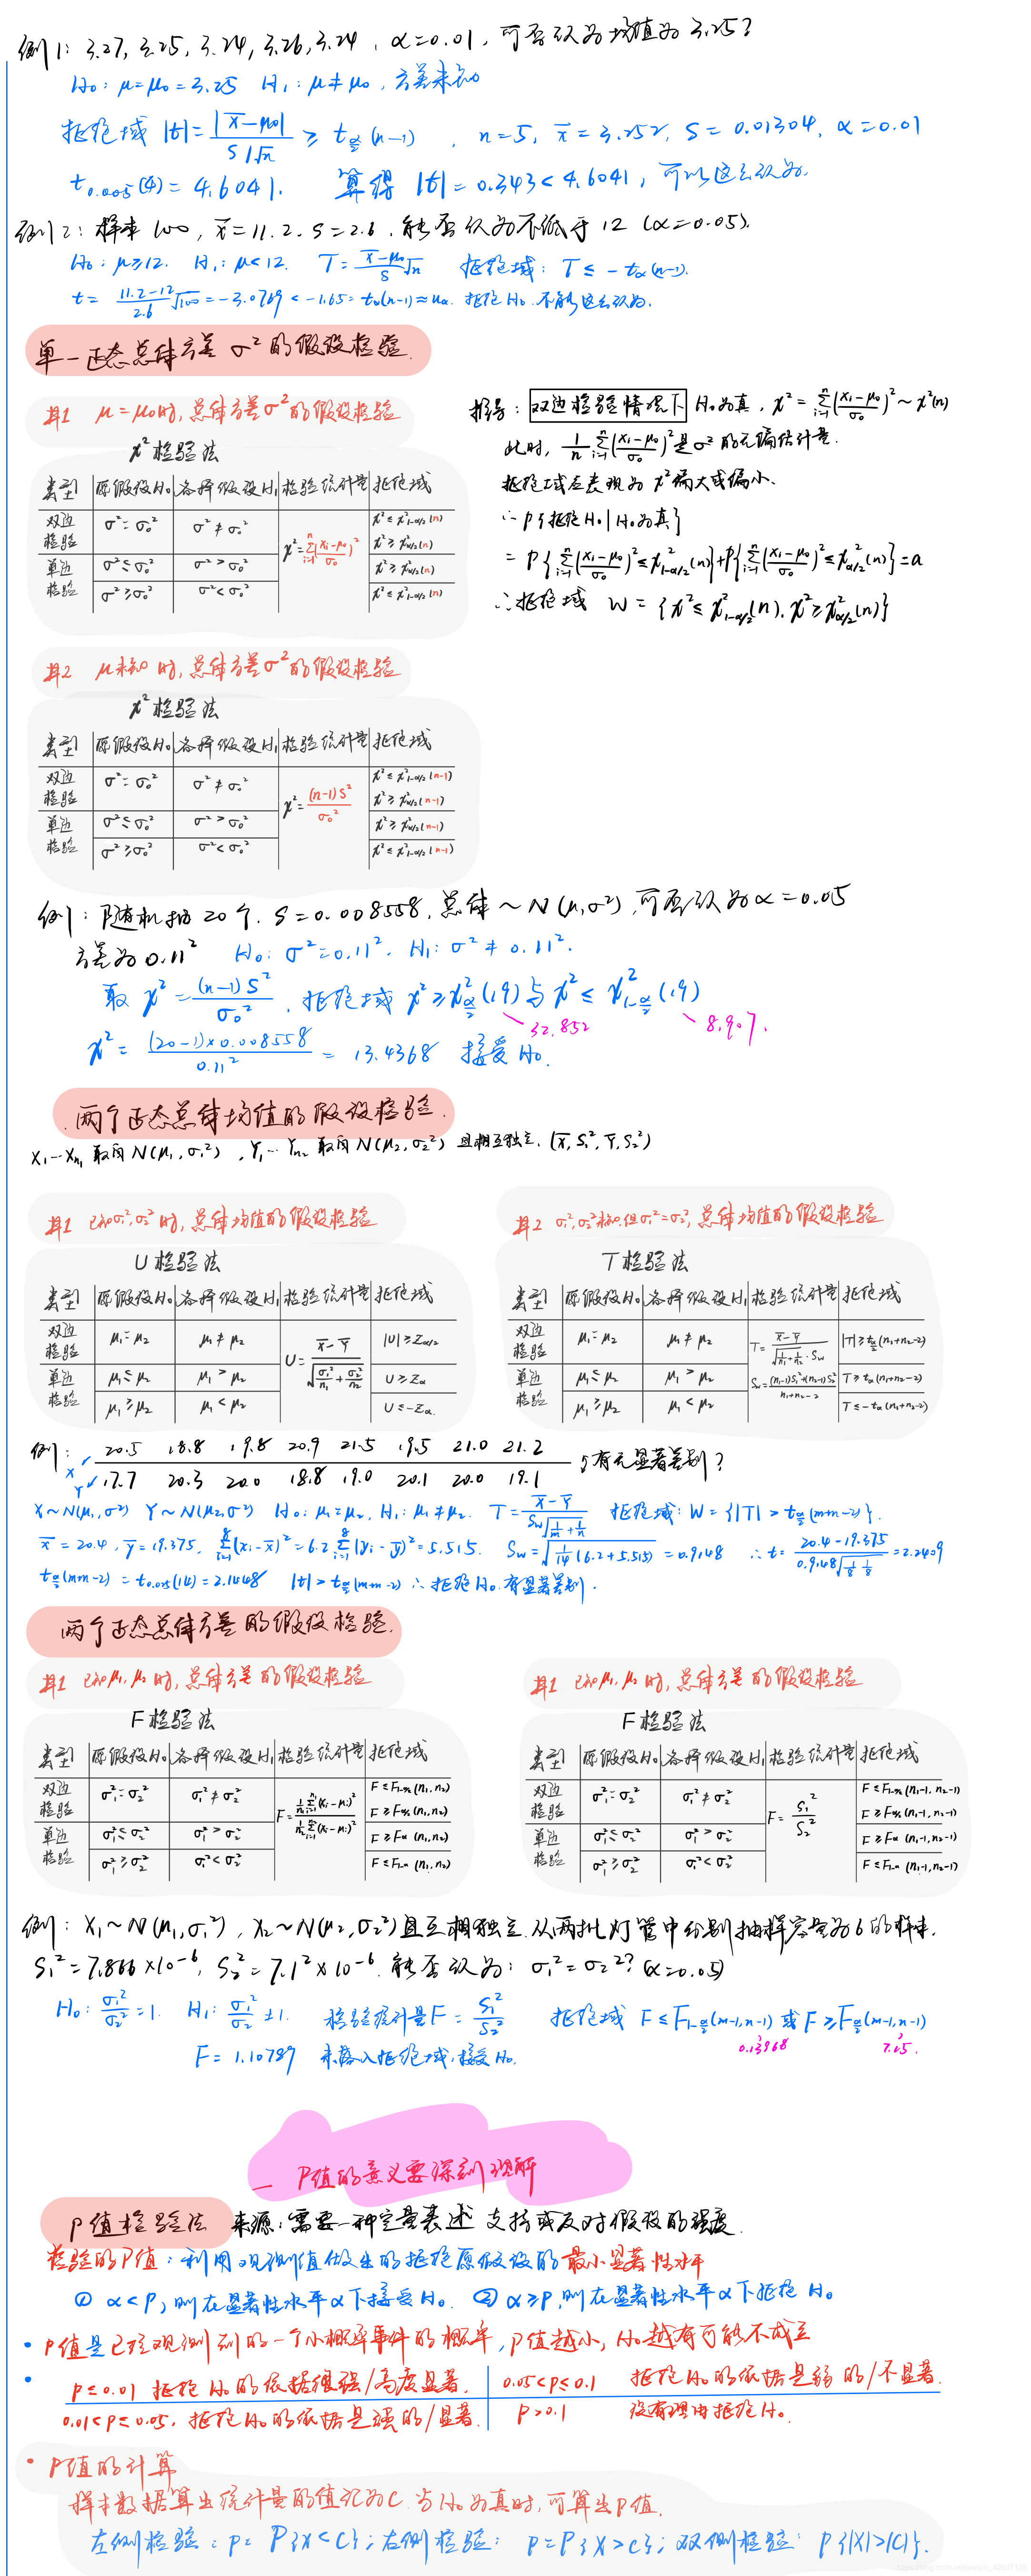 例1: 3.27, 3.25, 3.24, 3.26, 3.24 , α=0.01, 可否认为均值为 3.25?
H₀: μ=μ₀=3.25 H₁: μ≠μ₀, 方差未知
拒绝域 |t|=|x̄-μ₀|/(S/√n) ≥ t_{α/2}(n-1) , n=5, x̄=3.252, S=0.01304, α=0.01
t₀.₀₀₅(4)=4.6041. 算得 |t|=0.343<4.6041, 可以这么认为.
例2: 样本 100, x̄=11.2, S=2.6, 能否认为不低于 12 (α=0.05).
H₀: μ≥12. H₁: μ<12. T=(x̄-μ₀)/S √n 拒绝域: T≤-t_α(n-1).
t=(11.2-12)/2.6 √100=-3.0769<-1.65=t_α(n-1)≈u_α. 拒绝H₀. 不能这么认为.
单一正态总体方差 σ² 的假设检验.
其1 μ=μ₀时, 总体方差σ²的假设检验
χ²检验法
类型 原假设H₀ 备择假设H₁ 检验统计量 拒绝域
双边检验 σ²=σ₀² σ²≠σ₀² χ²=Σ_{i=1}^n((xᵢ-μ₀)/σ₀)² χ²≤χ²_{1-α/2}(n) χ²≥χ²_{α/2}(n)
单边检验 σ²≤σ₀² σ²>σ₀² χ²≥χ²_{α/2}(n)
σ²≥σ₀² σ²<σ₀² χ²≤χ²_{1-α/2}(n)
推导: 双边检验情况下 H₀为真, χ²=Σ_{i=1}^n((xᵢ-μ₀)/σ₀)²~χ²(n)
此时, 1/n Σ_{i=1}^n((xᵢ-μ₀)/σ₀)²是σ²的无偏估计量.
拒绝域应表现为 χ²偏大或偏小.
∴P{拒绝H₀|H₀为真}
=P{Σ_{i=1}^n((xᵢ-μ₀)/σ₀)²≤χ²_{1-α/2}(n)}+P{Σ_{i=1}^n((xᵢ-μ₀)/σ₀)²≤χ²_{α/2}(n)}=α
∴拒绝域 W={χ²≤χ²_{1-α/2}(n), χ²≥χ²_{α/2}(n)}
其2 μ未知时, 总体方差σ²的假设检验
χ²检验法
类型 原假设H₀ 备择假设H₁ 检验统计量 拒绝域
双边检验 σ²=σ₀² σ²≠σ₀² χ²=(n-1)S²/σ₀² χ²≤χ²_{1-α/2}(n-1) χ²≥χ²_{α/2}(n-1)
单边检验 σ²≤σ₀² σ²>σ₀² χ²≥χ²_{α/2}(n-1)
σ²≥σ₀² σ²<σ₀² χ²≤χ²_{1-α/2}(n-1)
例: 随机抽 20 个. S=0.008558, 总体~N(μ,σ²), 可否认为α=0.05
方差为 0.11² H₀: σ²=0.11², H₁: σ²≠0.11².
取 χ²=(n-1)S²/σ₀², 拒绝域 χ²≥χ²_{α/2}(19)与χ²≤χ²_{1-α/2}(19)
32.852 8.907.
χ²=(20-1)×0.008558/0.11²=13.4368 接受H₀.
两个正态总体均值的假设检验.
X₁…X_{n₁}取自N(μ₁,σ₁²), Y₁…Y_{n₂}取自N(μ₂,σ₂²) 且相互独立. (x̄,S₁²,ȳ,S₂²)
其1 已知σ₁²,σ₂²时, 总体均值的假设检验
U检验法
类型 原假设H₀ 备择假设H₁ 检验统计量 拒绝域
双边检验 μ₁=μ₂ μ₁≠μ₂ U=(x̄-ȳ)/√(σ₁²/n₁+σ₂²/n₂) |U|≥Z_{α/2}
单边检验 μ₁≤μ₂ μ₁>μ₂ U≥Z_α
μ₁≥μ₂ μ₁<μ₂ U≤-Z_α
其2 σ₁²,σ₂²未知,但σ₁²=σ₂², 总体均值的假设检验
T检验法
类型 原假设H₀ 备择假设H₁ 检验统计量 拒绝域
双边检验 μ₁=μ₂ μ₁≠μ₂ T=(x̄-ȳ)/(√(1/n₁+1/n₂)·S_w) |T|≥t_{α/2}(n₁+n₂-2)
单边检验 μ₁≤μ₂ μ₁>μ₂ S_w=((n₁-1)S₁²+(n₂-1)S₂²)/(n₁+n₂-2) T≥t_α(n₁+n₂-2)
μ₁≥μ₂ μ₁<μ₂ T≤-t_α(n₁+n₂-2)
例: X 20.5 18.8 19.8 20.9 21.5 19.5 21.0 21.2
Y 17.7 20.3 20.0 18.8 19.0 20.1 20.0 19.1 有无显著差别?
X~N(μ₁,σ²) Y~N(μ₂,σ²) H₀: μ₁=μ₂, H₁: μ₁≠μ₂. T=(x̄-ȳ)/(S_w√(1/m+1/n)) 拒绝域: W={|T|>t_{α/2}(m+n-2)}.
x̄=20.4, ȳ=19.375, Σ_{i=1}^8(xᵢ-x̄)²=6.2, Σ_{i=1}^8(yᵢ-ȳ)²=5.515. S_w=√(1/14(6.2+5.515))=0.9148 ∴t=(20.4-19.375)/(0.9148√(1/8 1/8))=2.2409
t_{α/2}(m+n-2)=t₀.₀₂₅(14)=2.1448 |t|>t_{α/2}(m+n-2) ∴拒绝H₀. 有显著差别.
两个正态总体方差的假设检验.
其1 已知μ₁,μ₂时, 总体方差的假设检验
F检验法
类型 原假设H₀ 备择假设H₁ 检验统计量 拒绝域
双边检验 σ₁²=σ₂² σ₁²≠σ₂² F≤F_{1-α/2}(n₁,n₂) F≥F_{α/2}(n₁,n₂)
单边检验 σ₁²≤σ₂² σ₁²>σ₂² F≥F_α(n₁,n₂)
σ₁²≥σ₂² σ₁²<σ₂² F≤F_{1-α}(n₁,n₂)
其1 已知μ₁,μ₂时, 总体方差的假设检验
F检验法
类型 原假设H₀ 备择假设H₁ 检验统计量 拒绝域
双边检验 σ₁²=σ₂² σ₁²≠σ₂² F=S₁²/S₂² F≤F_{1-α/2}(n₁-1,n₂-1) F≥F_{α/2}(n₁-1,n₂-1)
单边检验 σ₁²≤σ₂² σ₁²>σ₂² F≥F_α(n₁-1,n₂-1)
σ₁²≥σ₂² σ₁²<σ₂² F≤F_{1-α}(n₁-1,n₂-1)
例: X₁~N(μ₁,σ₁²), X₂~N(μ₂,σ₂²)且互相独立. 从两批灯管中分别抽样容量为6的样本.
S₁²=7.866×10⁻⁶, S₂²=7.1²×10⁻⁶. 能否认为: σ₁²=σ₂²? (α=0.05)
H₀: σ₁²/σ₂²=1. H₁: σ₁²/σ₂²≠1. 检验统计量F=S₁²/S₂² 拒绝域 F≤F_{1-α/2}(m-1,n-1) 或 F≥F_{α/2}(m-1,n-1)
0.13968 7.15.
F=1.10789 未落入拒绝域, 接受H₀.
P值的意义要深刻理解
P值检验法 来源: 需要一种定量表述 支持或反对假设的强度.
检验的P值: 利用观测值做出的拒绝原假设的最小显著性水平
① α<P, 则在显著性水平α下接受H₀. ② α≥P, 则在显著性水平α下拒绝H₀
• P值是已经观测到的一个小概率事件的概率, P值越小, H₀越有可能不成立
• P≤0.01 拒绝H₀的依据很强/高度显著. 0.05<P≤0.1 拒绝H₀的依据是弱的/不显著.
0.01<P≤0.05. 拒绝H₀的依据是强的/显著. P>0.1 没有理由拒绝H₀.
• P值的计算
样本数据算出统计量的值记为C. 当H₀为真时, 可算出P值.
左侧检验: P=P{X<C}; 右侧检验: P=P{X>C}; 双侧检验: P{|X|>|C|}.